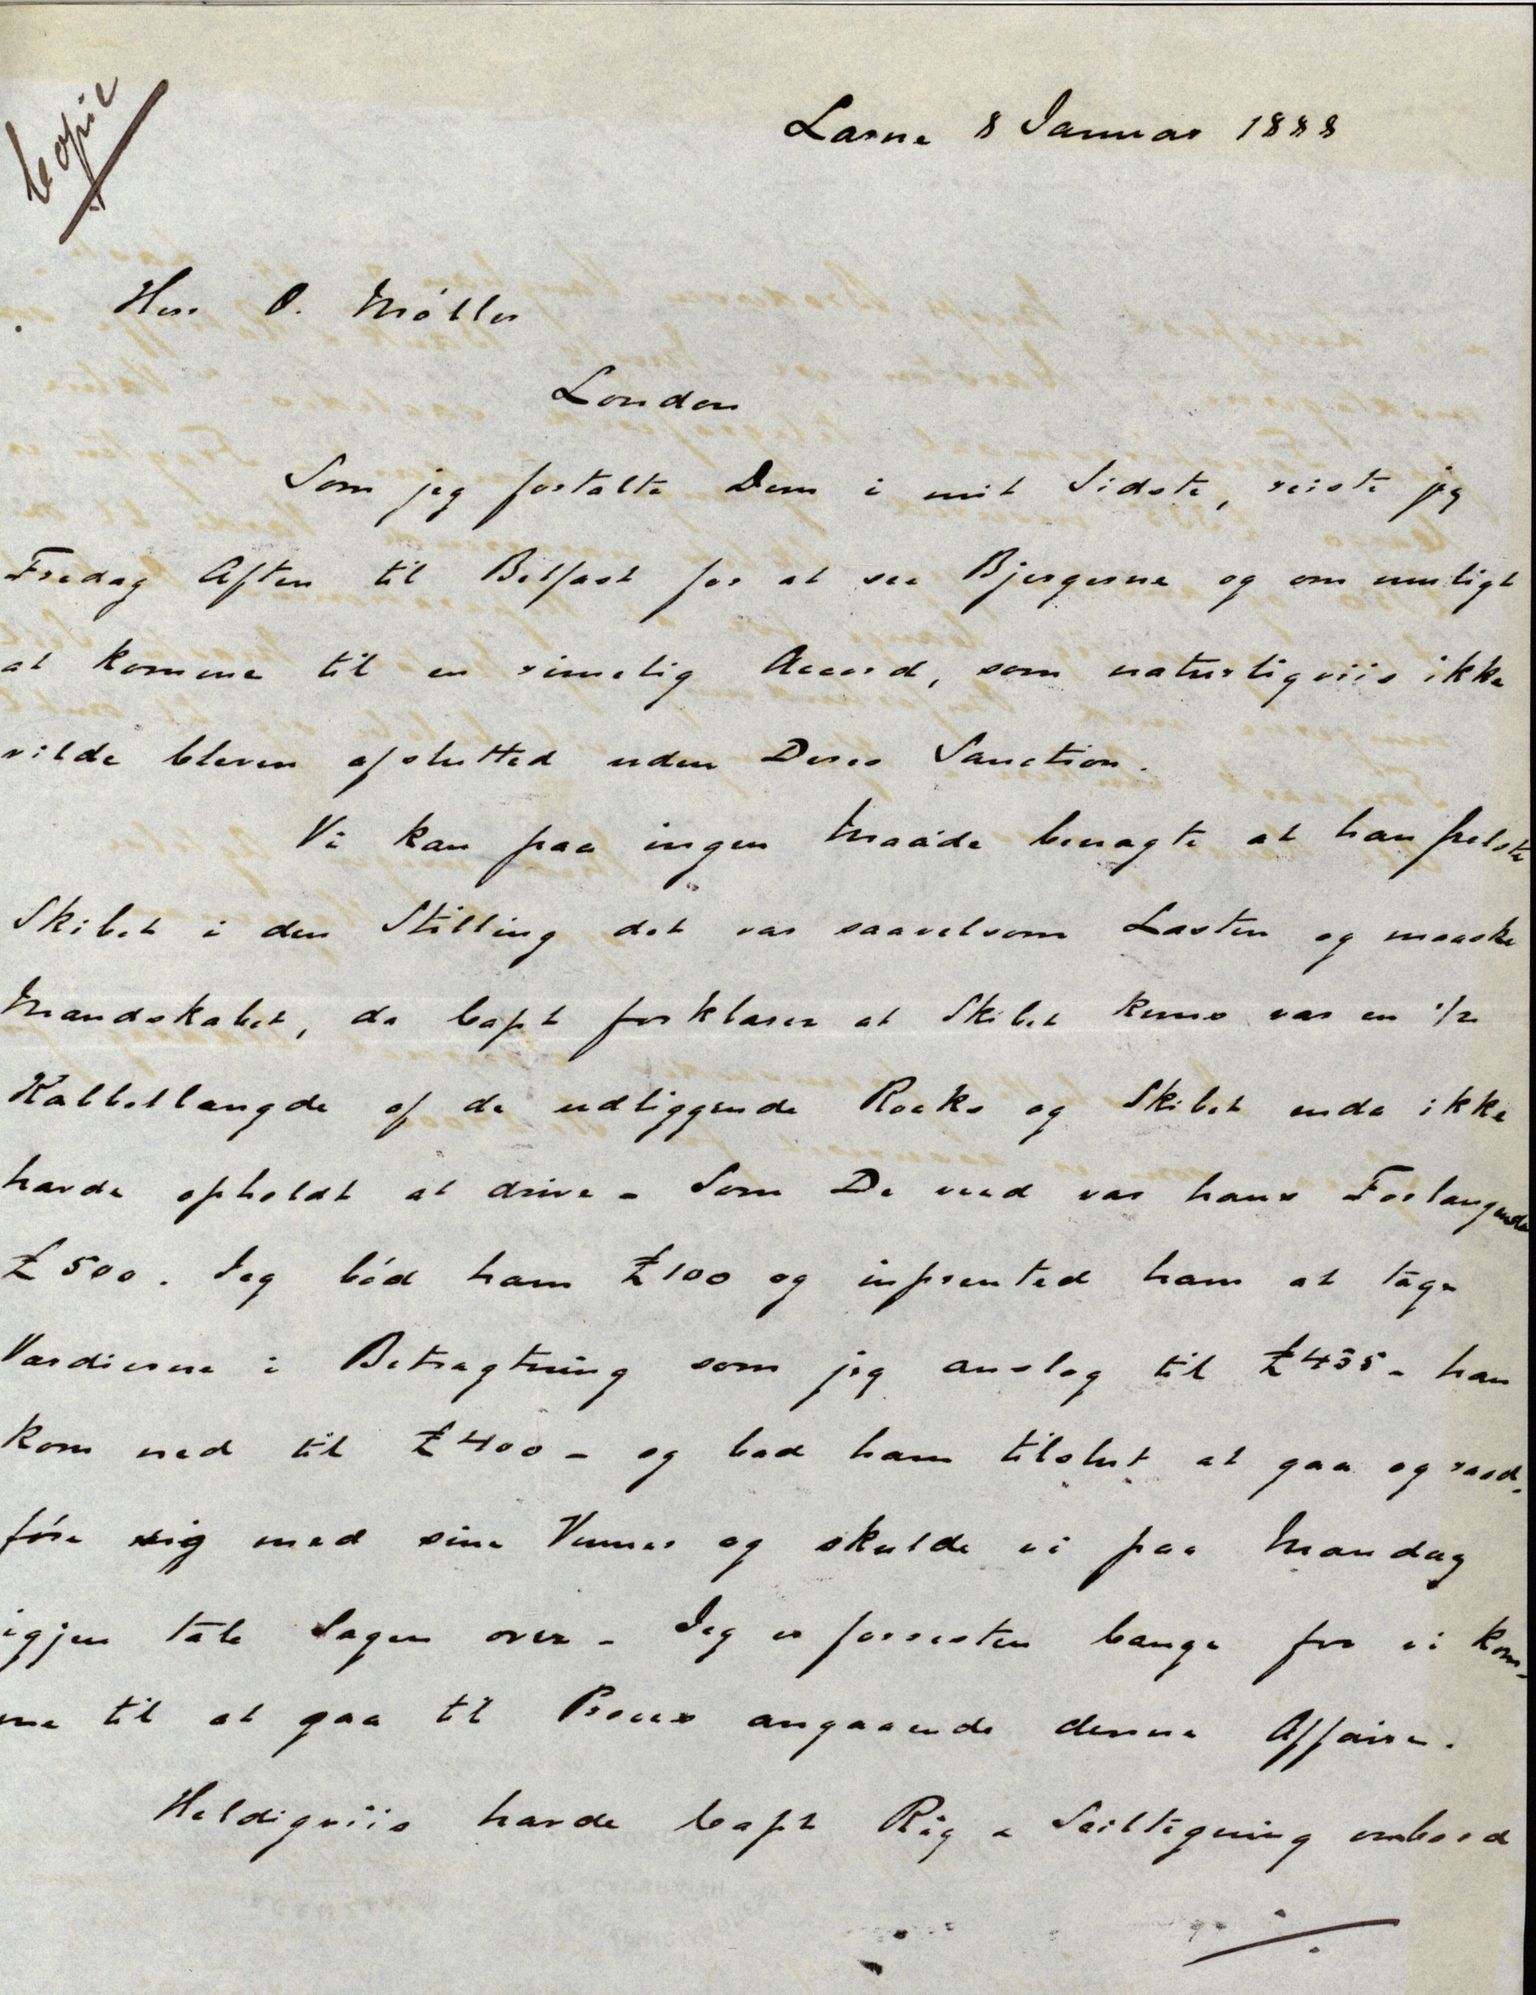 Copie
Larne 8 Januar 1888
Herr O. Møller
London
Som jeg fortalte Dem i mit Sidste, reiste jeg
Fredag Aften til Belfast for at see Bjergerne og om muligt
at komme til en rimelig Accord, som naturligviis ikke
vilde bleven afslutted uden Deres Sanction.
Vi kan paa ingen Maade benægte at han frelste
Skibet i den Stilling det var saavelsom Lasten og maaske
Mandskabet, da Capt forklarer at Skibet kuns var en 1/2
Kabbellængde af de udliggende Rocks og Skibet enda ikke
havde opholdt at drive - Som De veed var hans Forlangende
£500. Jeg bød ham £100 og inprented ham at tage
Værdierne i Betragtning som jeg anslog til £435 - han
kom ned til £400 - og bad ham tilslut at gaa og raad-
føre sig med sine Venner og skulde vi paa Mandag
igjen tale Sagen over - Jeg er forresten bange for vi kom-
me til at gaa til Proces angaaende denne Affaire.
Heldigviis havde Capt Rig & Seiltegning ombord